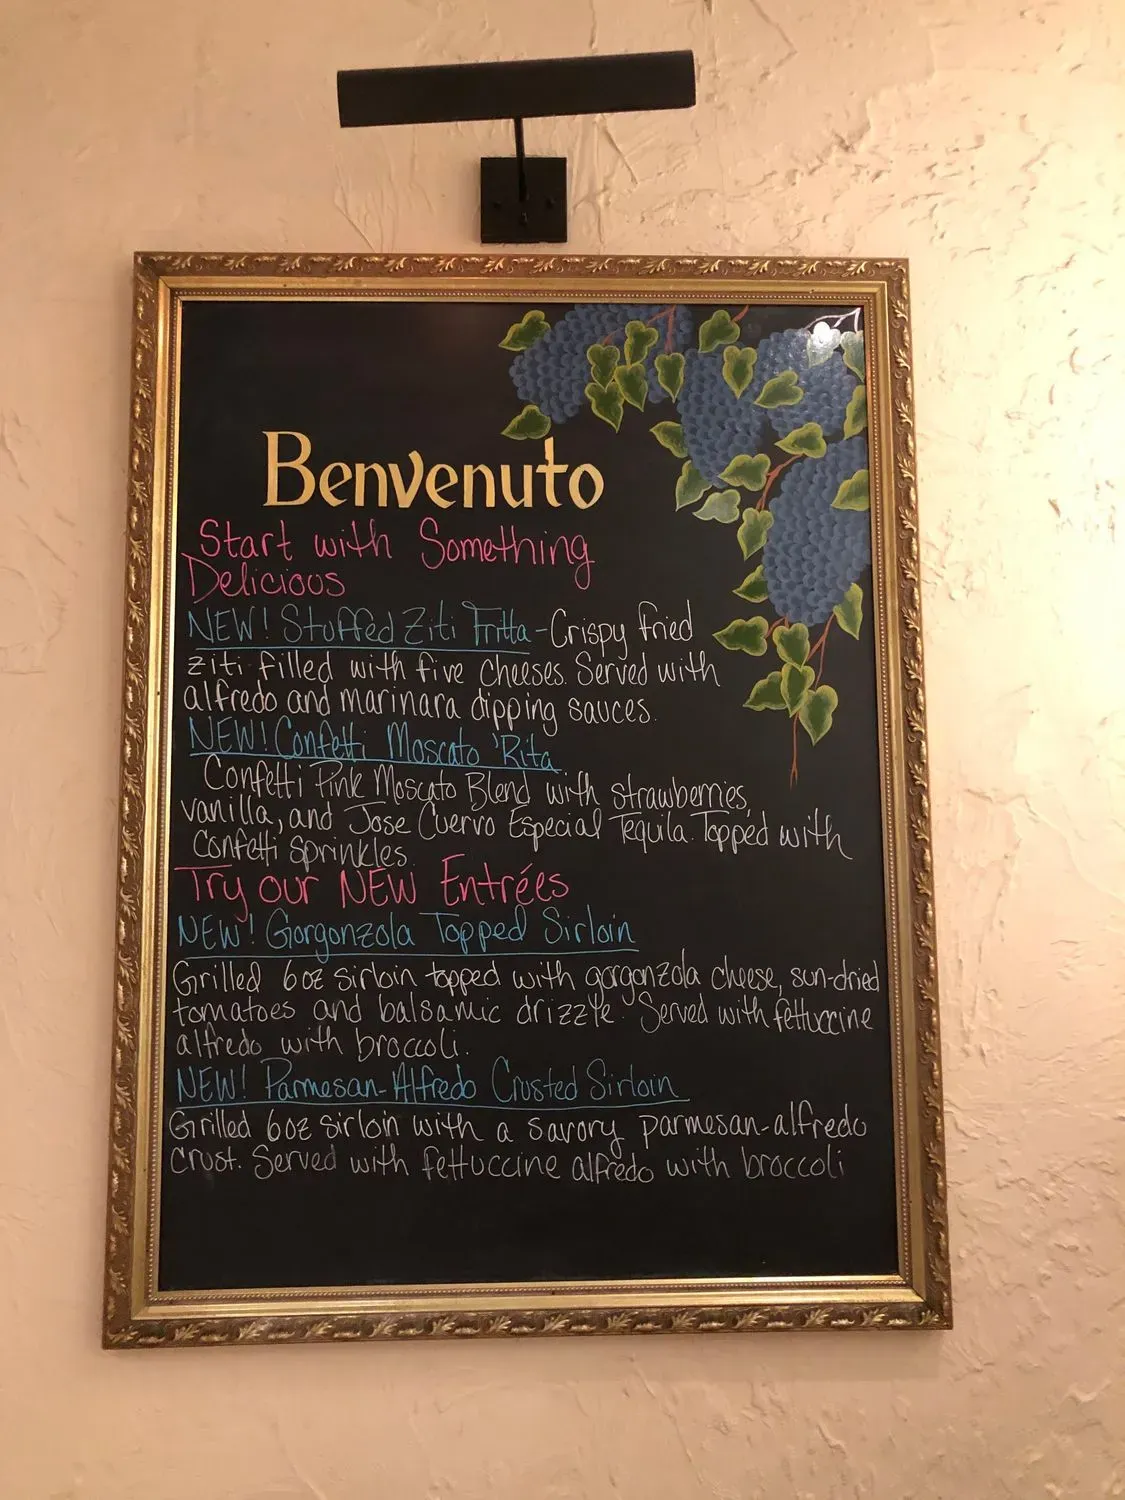 Benvenuto
Start with Something
Delicious
NEW! Stuffed Ziti Fritta - Crispy fried
ziti filled with five cheeses. Served with
alfredo and marinara dipping sauces.
NEW! Confetti Moscato 'Rita
Confetti Pink Moscato Blend with strawberries,
vanilla, and Jose Cuervo Especial Tequila. Topped with
Confetti Sprinkles.
Try our NEW Entrées
NEW! Gorgonzola Topped Sirloin
Grilled 6oz sirloin topped with gorgonzola cheese, sun-dried
tomatoes and balsamic drizzle. Served with fettuccine
alfredo with broccoli.
NEW! Parmesan-Alfredo Crusted Sirloin
Grilled 6oz sirloin with a savory parmesan-alfredo
crust. Served with fettuccine alfredo with broccoli